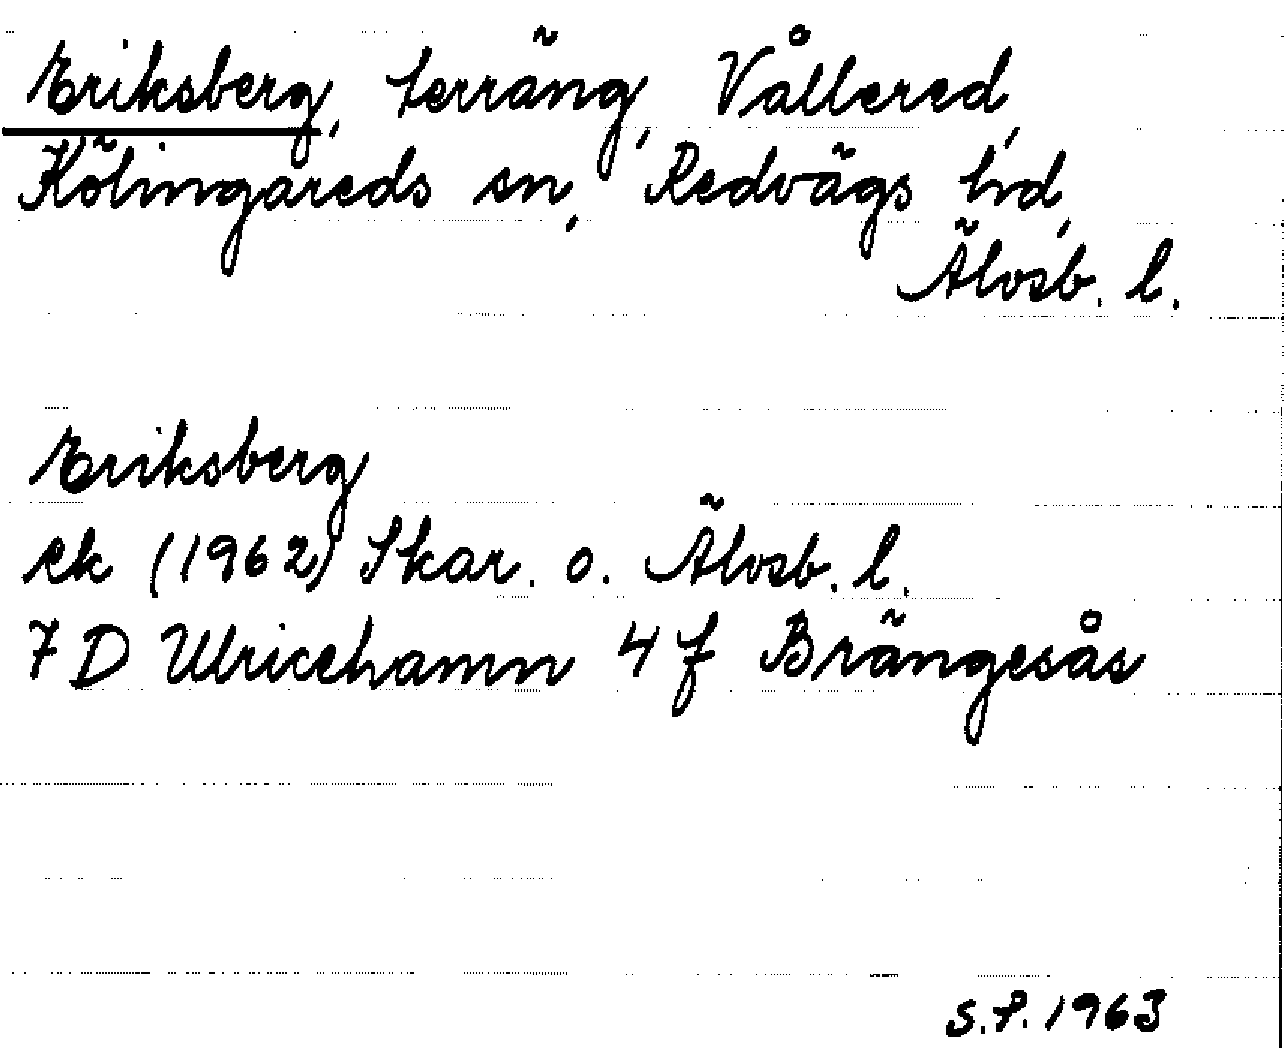 Eriksberg, terräng, Vållered,
Kölingareds sn, Redvägs hd,
Älvsb. l.
Eriksberg
ek (1962) Skar. o. Älvsb. l.
7 D Ulricehamn 4 f Brängesås
S.P. 1963